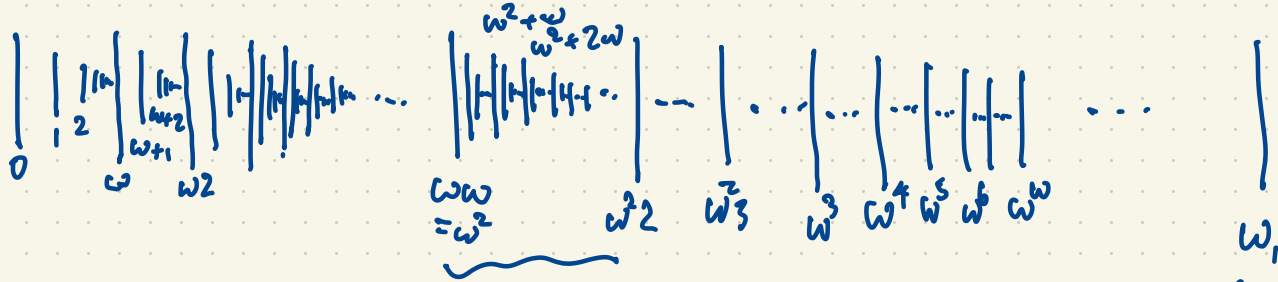 ω²+ω
ω²+2ω
0 1 2 ω ω+1 ω+2 ω2 ... ωω ω²2 ... ω²3 ... ω³ ... ω⁴ ... ω⁵ ... ω⁶ ... ω^ω ... ω₁
=ω²